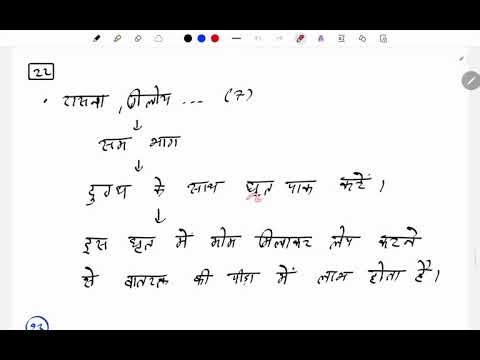 22
• रास्ना, गिलोय ... (7)
↓
सम भाग
↓
दुग्ध के साथ घृत पाक करें।
↓
इस घृत में मोम मिलाकर लेप करने
से वातरक्त की पीड़ा में लाभ होता है।
23